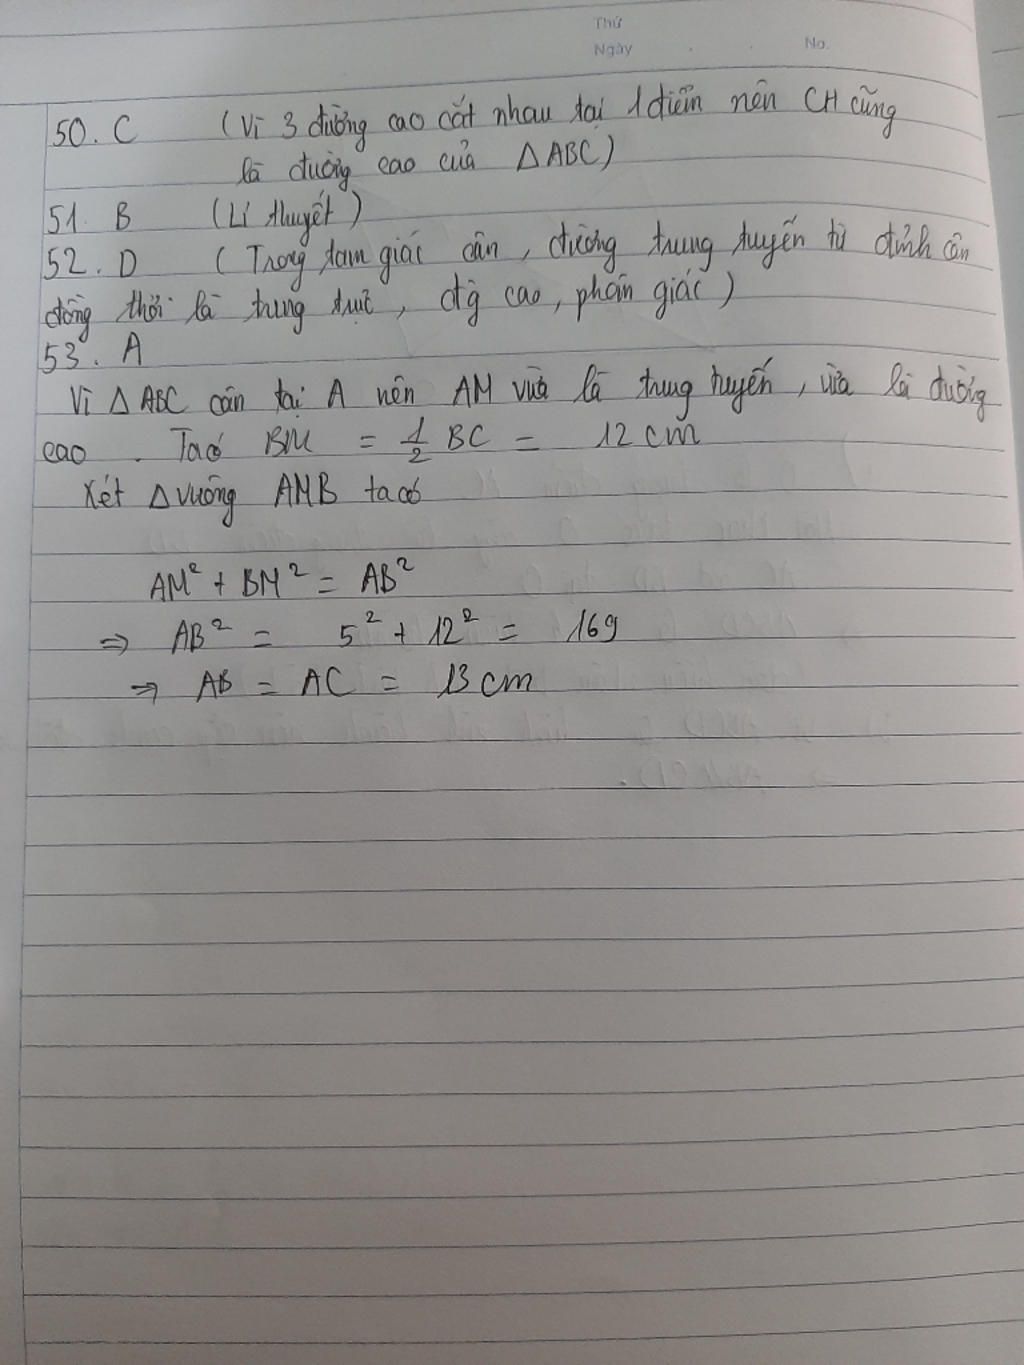 Thứ
Ngày . . No.
50. C (Vì 3 đường cao cắt nhau tại 1 điểm nên CH cũng
là đường cao của △ABC)
51. B (Lí thuyết)
52. D (Trong tam giác cân, đường trung tuyến từ đỉnh cân
đồng thời là trung trực, đg cao, phân giác)
53. A
Vì △ABC cân tại A nên AM vừa là trung tuyến, vừa là đường
cao. Ta có BM = 1/2 BC = 12 cm
Xét △ vuông AMB ta có
AM² + BM² = AB²
⇒ AB² = 5² + 12² = 169
⇒ AB = AC = 13 cm